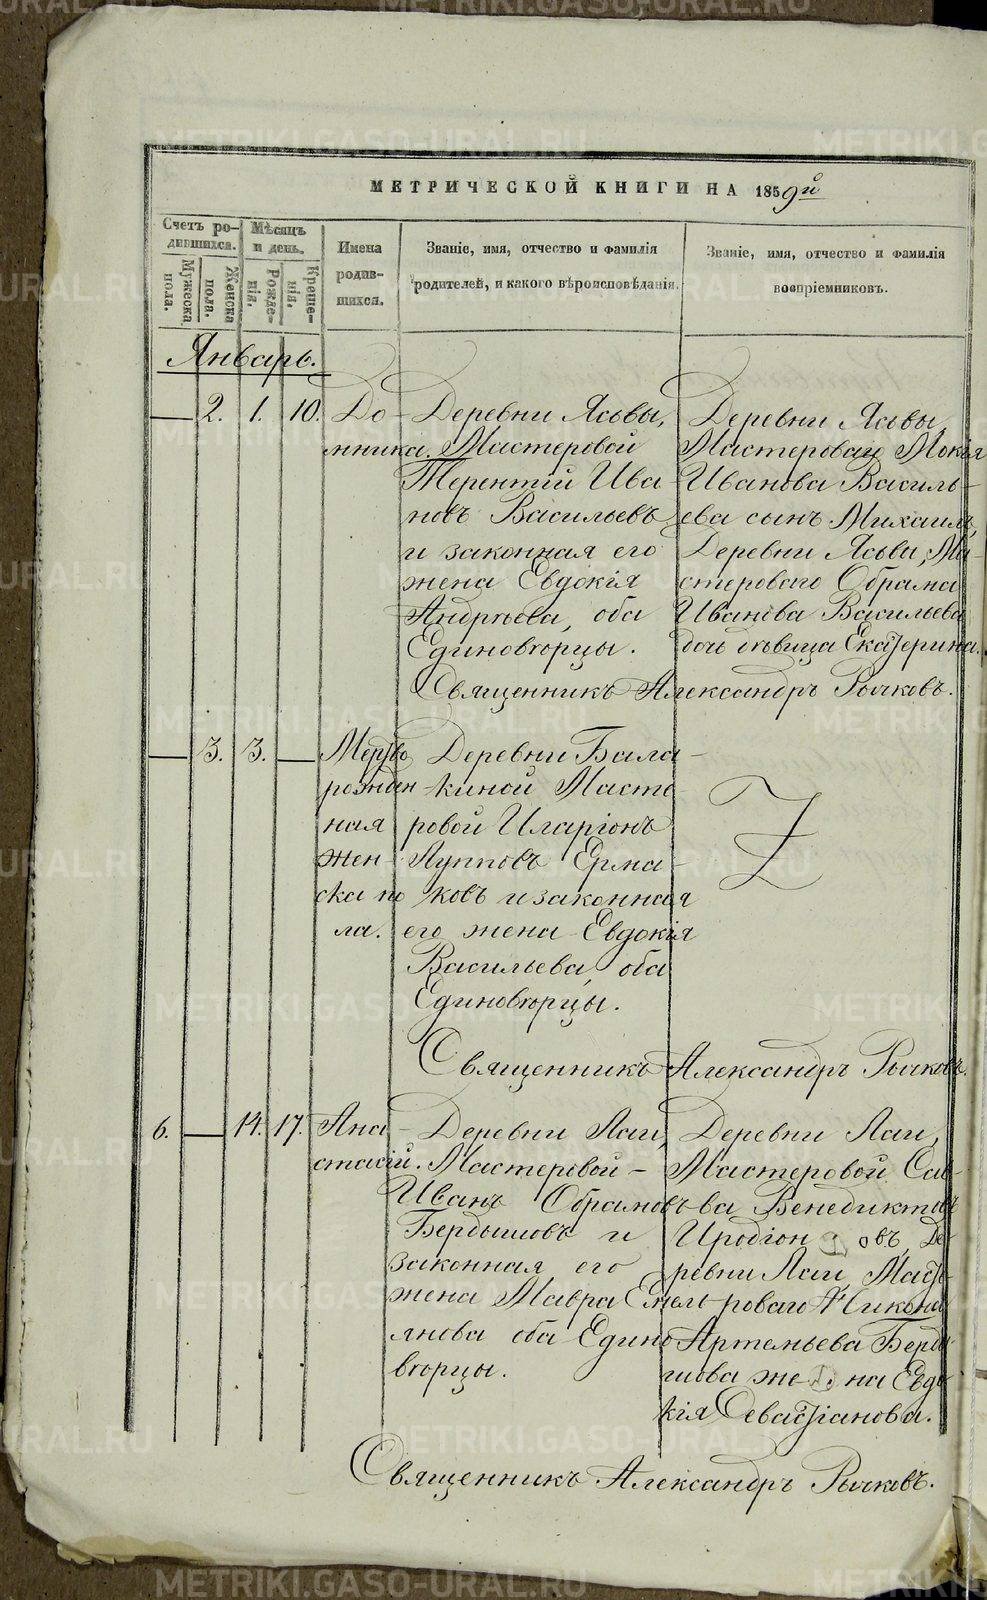 МЕТРИЧЕСКОЙ КНИГИ НА 1859й
Счетъ ро-
дившихся.
Мужеска
пола.
Женска
пола.
Мѣсяцъ
и день.
Рожде-
нія.
Креще-
нія.
Имена
родив-
шихся.
Званіе, имя, отчество и фамилія
родителей, и какого вѣроисповѣданія.
Званіе, имя, отчество и фамилія
воспріемниковъ.
Январь.
— 2. 1. 10.
До-
мника.
Деревни Ясьвы,
Мастеровой
Терентій Ива
новъ Васильевъ
и законная его
жена Евдокія
Андрѣева, оба
Единовѣрцы.
Деревни Ясьвы,
Мастероваго Мокія
Иванова Василь-
ева сынъ Михаилъ,
Деревни Ясьвы, Ма-
стероваго Обрама
Иванова Васильева
дочь дѣвица Екатерина.
Священникъ Александръ Рычковъ.
— 3. 3. —
Мертво
рожден
ная
жен-
ска по
ла.
Деревни Бала-
киной Масте
ровой Иларіонъ
Лупповъ Ерма-
ковъ и законная
его жена Евдокія
Васильева, оба
Единовѣрцы.
Священникъ Александръ Рычковъ.
6. — 14. 17.
Ана-
стасій.
Деревни Лаи,
Мастеровой -
Иванъ Обрамовъ
Бердышовъ и
законная его
жена Мавра Емель
янова оба Едино
вѣрцы.
Деревни Лаи,
Мастеровой Сав-
ва Венедиктовъ
Иродіоновъ, Де-
ревни Лаи, Масте-
роваго Никона
Артемьева Берды
шова жена Евдо
кія Севастіанова.
Священникъ Александръ Рычковъ.
METRIKI.GASO-URAL.RU